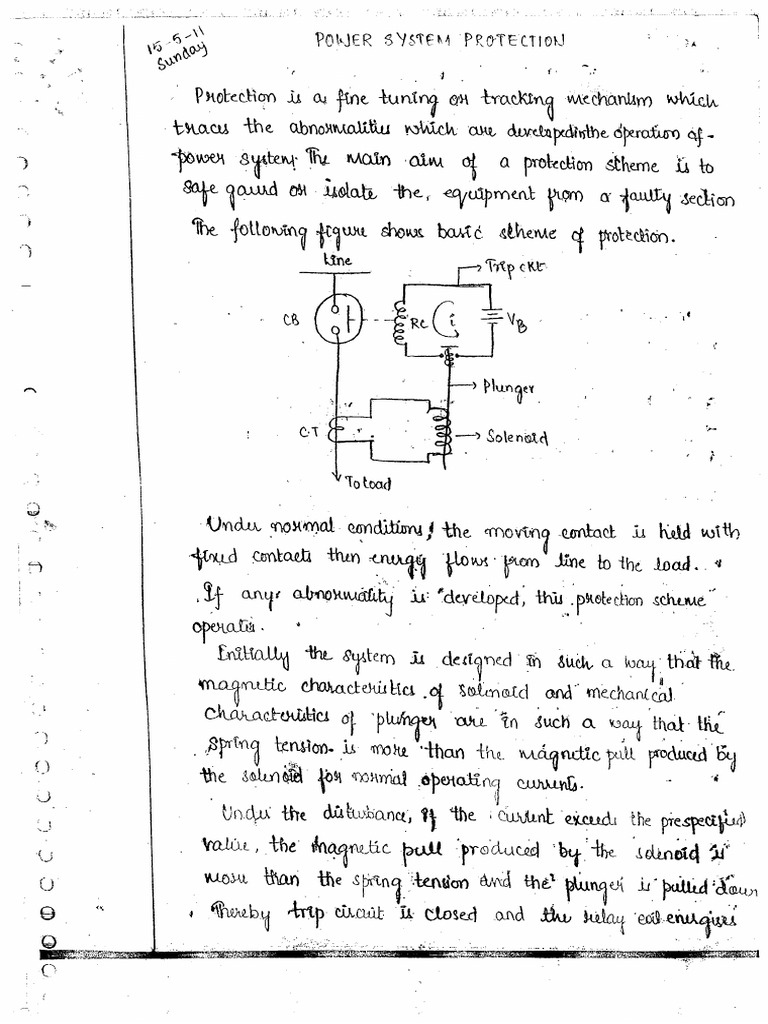 15-5-11
Sunday
POWER SYSTEM PROTECTION
Protection is a fine tuning or tracking mechanism which
traces the abnormalities which are developed in the operation of
power system. The main aim of a protection scheme is to
safe gaurd or isolate the, equipment from a faulty section
The following figure shows basic scheme of protection.
Line
Trip ckt
CB
RC
i
VB
Plunger
C.T
Solenoid
To Load
Under normal conditions, the moving contact is held with
fixed contacts then energy flows from line to the load.
If any abnormality is developed, this protection scheme
operates.
Initially the system is designed in such a way that the
magnetic characteristics of solenoid and mechanical
characteristics of plunger are in such a way that the
spring tension is more than the magnetic pull produced by
the solenoid for normal operating currents.
Under the disturbance, if the current exceeds the prespecified
value, the magnetic pull produced by the solenoid is
more than the spring tension and the plunger is pulled down
Thereby trip circuit is closed and the relay coil energises